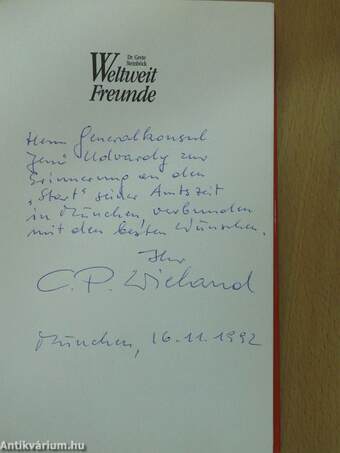 Dr. Grete
Steinböck
Weltweit
Freunde
Herrn Generalkonsul
Jenő Udvardy zur
Erinnerung an den
„Start" seiner Amtszeit
in München, verbunden
mit den besten Wünschen.
Ihr
C. P. Wieland
München, 16.11.1992
Antikvárium.hu